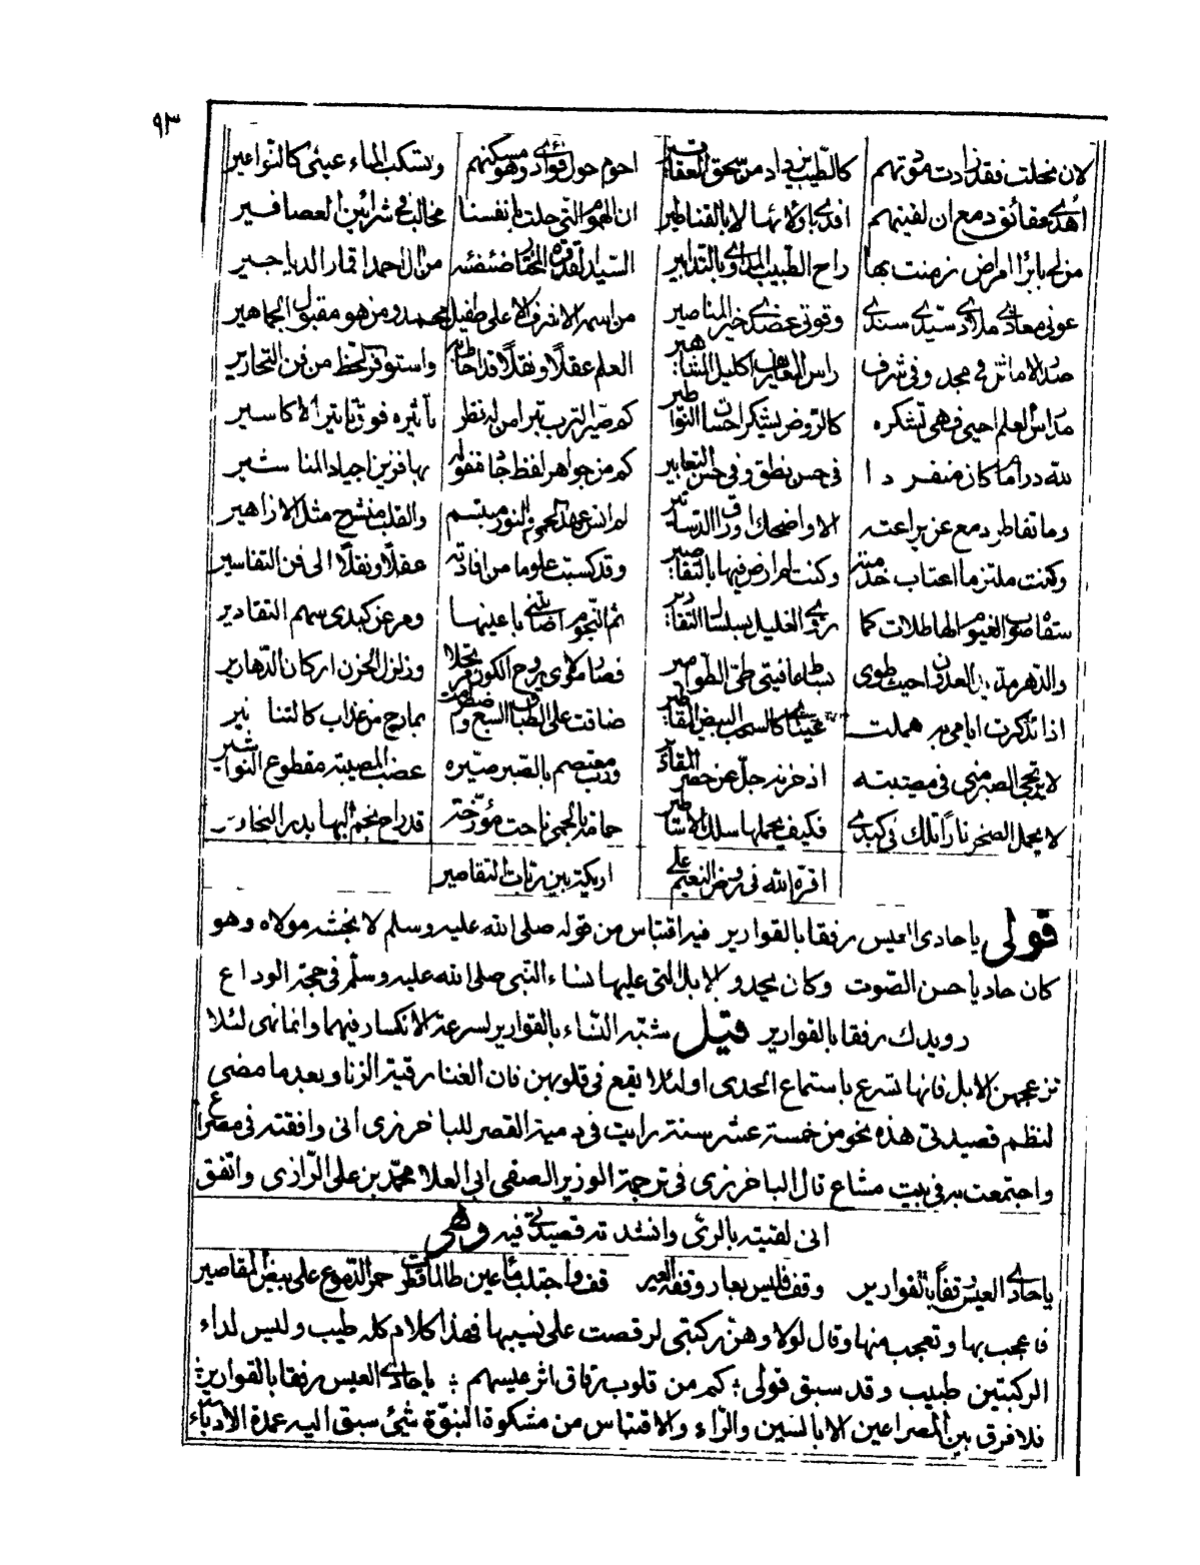 ٩٣
لان نحلت فقد زادت مودتهم كالطيب يزداد من سحق العقاقير احوم حول فؤادي وهو مسكنهم وتسكب الماء عيني كالنواعير
اهدي عقائق دمع ان لقيتهم افدي باولائها لا بالقناطير ان الهموم التي حلت بانفسنا مخالب في شرائين العصافير
من لي بابرا امراض زمنت بها راح الطبيب المداوي بالتدابير السيد المقتدى المختار ضئضئه من ال احمد اقمار الدياجير
عوني معاذي ملاذي سيدي سندي وقوتي عضدي خير المناصير من اسمه الاشرف الاعلى طفيل محمد ومن هو مقبول الجماهير
صدر الاماثل في مجد وفي شرف راس المعاريف اكليل المشاهير العلم عقلا ونقلا قد احاط به واستوفر الحظ من فن التحارير
مدارس العلم احيى فهي تشكره كالروض يشكر احسان المواطير كم صير الترب تبرا من له نظر تأثيره فوق تاثير الاكاسير
لله در امام كان منفردا في حسن نطق وفي حسن التعابير كم من جواهر لفظ جاء فقوله بها فزين اجياد المناشير
وما تقاطر دمع عن يراعته الا واضحك اوراق الدساتير لم انس عهد الحمى والنور مبتسم والقلب منشرح مثل الازاهير
وكنت ملتزما اعتاب خدمته وكنت لم ارض فيها بالتقاصير وقد كسبت علوما من افادته عقلا ونقلا الى فن التفاسير
سقاه صوب الغيوم الهاطلات كما روى الغليل بسلسال التقارير ثم النجوم اصابتني باعينها ومر عن كبدي سهم التقادير
والدهر مد يد العدوان حيث طوى بساط عافيتي طي الطوامير فصار مولاي روح الكون مرتحلا وزلزل الحزن اركان الدهارير
اذا تذكرت ايامي به هملت عيناي كالسحب البيض المقاطير ضاقت على الطباق السبع واضطرمت بمارج من عذاب كالتنانير
لا يرتجى الصبر مني في مصيبته اذ حزنه جل عن حصر المقادير ورب معتصم بالصبر صيره عضب المصيبة مقطوع النواشير
لا يحمل الصخر نارا تلك في كبدي فكيف يحملها سلك الاساطير حمامة بالحمى ناحت مؤرخة قد راح نجم البها بدر النحارير
اقره الله في روض النعيم على اريكة بين ربات المقاصير
قولي يا حادي العيس رفقا بالقوارير فيه اقتباس من قوله صلى الله عليه وسلم لانجشه مولاه وهو
كان حاديا حسن الصوت وكان يحدو بالابل التي عليها نساء النبي صلى الله عليه وسلم في حجة الوداع
رويدك رفقا بالقوارير قيل شبه النساء بالقوارير لسرعة الانكسار فيهما وانما نهى لئلا
تزعجهن الابل فانها تسرع باستماع الحدى او لئلا يقع في قلوبهن فان الغناء رقية الزنا وبعد ما مضى
لنظم قصيدتي هذه نحو من خمسة عشر سنة رايت في دمية القصر للباخرزي اني وافقته في مصراع
واجتمعت به في بيت مشاع قال الباخرزي في ترجمة الوزير الصفي ابي العلا محمد بن علي الرازي واتفق
اني لقيته بالرى وانشدته قصيدتي فيه وهي
يا حادي العيس رفقاً بالقوارير وقف فليس بعار وقفة العير قف واجتلب ماء عين طالما قطرت حمر الدموع على بيض المقاصير
فاعجب بها وتعجب منها وقال لولا وهن ركبتي لرقصت على نسيبها فهذا كلام كله طيب وليس لداء
الركبتين طبيب وقد سبق قولي؛ كم من قلوب رقاق اثر عيسهم ؛ يا حادي العيس رفقا بالقوارير؛
فلا فرق بين المصراعين الا بالسين والراء والاقتباس من مشكوة النبوة شئ سبق اليه عمدة الادباء